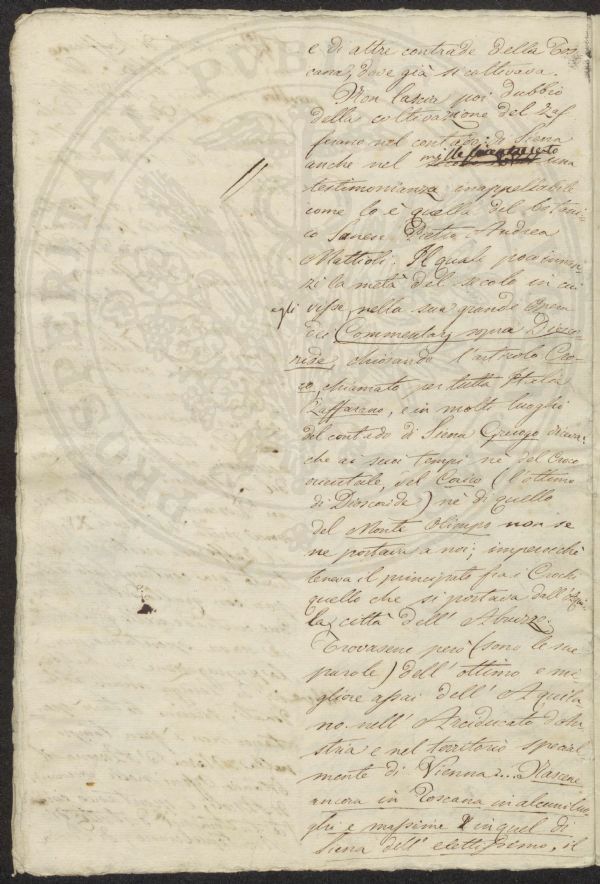 e di altre contrade della Tos
cana, dove già si coltivava.
Non lascia poi dubbio
della coltivazione del Zaf
ferano nel contado di Siena
anche nel mille cinquecento una
testimonianza inappellabile
come lo è quella del botani
co Sanese Pietro Andrea
Mattioli. Il quale poco innan
zi la metà del secolo in cui
egli visse, nella sua grande Opera
Commentarj sopra Diosco
ride, chiosando l'articolo Cro
co, chiamato per tutta Italia
Zaffarano, e in molti luoghi
del contado di Siena Gruogo diceva:
che ai suoi tempi nè del Croco
orientale, del Corico (l'ottimo
di Dioscoride) nè di quello
del Monte Olimpo non se
ne portava a noi; imperocchè
teneva il principato fra i Crochi
quello che si portava dall'Aqui
la, città dell'Abruzzo.
Trovasene però (sono le sue
parole) dell'ottimo e mi
gliore assai dell'Aquila
no nell'Arciducato d'Au
stria e nel territorio special
mente di Vienna... Nascene
ancora in Toscana in alcuni luo
ghi e massime in quel di
Siena dell'elettissimo, il
PROSPERITATI PUBLI